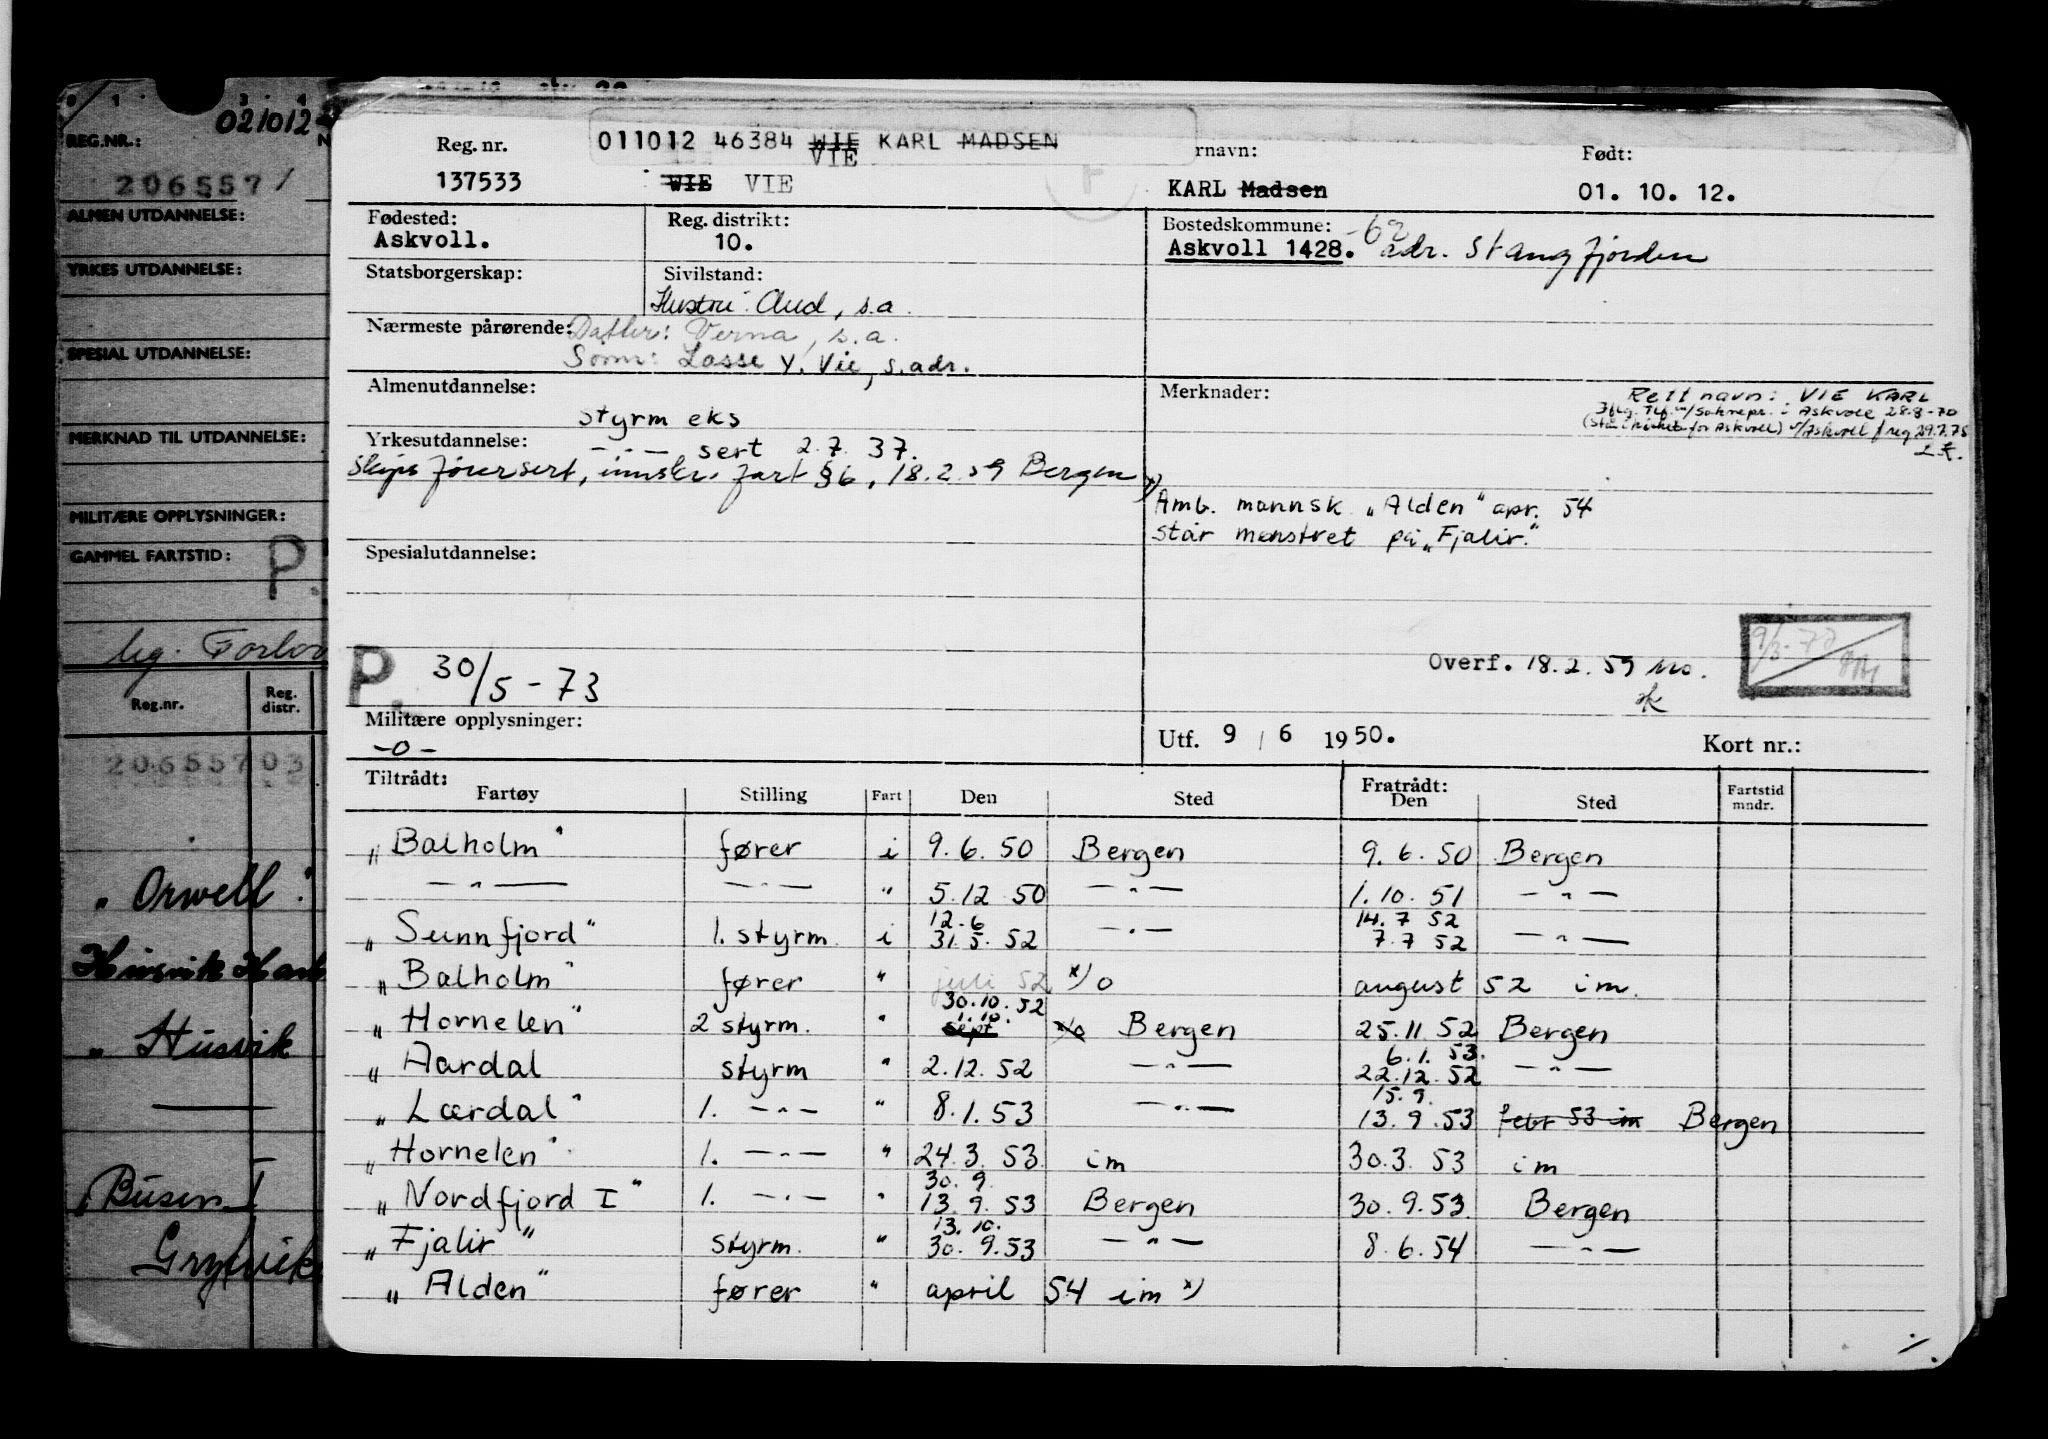 021012
REG.NR.:
2065571
ALMEN UTDANNELSE:
YRKES UTDANNELSE:
SPESIAL UTDANNELSE:
MERKNAD TIL UTDANNELSE:
MILITÆRE OPPLYSNINGER:
GAMMEL FARTSTID:
P.
Reg.nr. Reg. distr.
20655703
„Orwell".
Husvik
„Husvik
Busen I
Reg. nr. 011012 46384 WIE KARL MADSEN rnavn: Født:
VIE
137533 WIE VIE KARL Madsen 01. 10. 12.
Fødested: Reg. distrikt: Bostedskommune: -62
Askvoll. 10. Askvoll 1428. adr. Stangfjorden
Statsborgerskap: Sivilstand:
Hustru: Aud, s.a.
Nærmeste pårørende: Datter: Verna, s.a.
Sønn: Lasse Y. Vie, s.adr.
Almenutdannelse: Merknader: Rett navn: VIE KARL
Askvoll 28.8-70
Styrm eks
Yrkesutdannelse: —"— sert 2.7.37.
Skipsførersert, innskr. fart §6, 18.2.59 Bergen
x) Amb. mannsk „Alden" apr. 54
står mønstret på „Fjalir."
Spesialutdannelse:
P. 30/5-73
Overf. 18.2.59 mo.
Militære opplysninger:
-0-
Utf. 9 / 6 1950. Kort nr.:
Tiltrådt: Fratrådt:
Fartøy Stilling Fart Den Sted Den Sted Fartstid mndr.
„Balholm" fører i 9.6.50 Bergen 9.6.50 Bergen
—"— —"— " 5.12 50 —"— 1.10.51 —"—
12.6 14.7 52
„Sunnfjord" 1. styrm. i 31.5.52 —"— 7.7 52 —"—
„Balholm" fører " juli 52 x) o august 52 im.
30.10.52
1.10.
„Hornelen" 2 styrm. " sept x/o Bergen 25.11 52 Bergen
6.1.53.
„Aardal styrm " 2.12.52 —"— 22.12.52 —"—
15.9.
„Lærdal" 1. —"— " 8.1.53 —"— 13.9.53 febr 53 im Bergen
„Hornelen" 1. —"— " 24.3.53 im 30.3.53 im
30.9.
„Nordfjord I" 1. —"— " 13.9.53 Bergen 30.9.53 Bergen
13.10.
„Fjalir" styrm. " 30.9.53 —"— 8.6.54 —"—
„Alden" fører " april 54 im x)